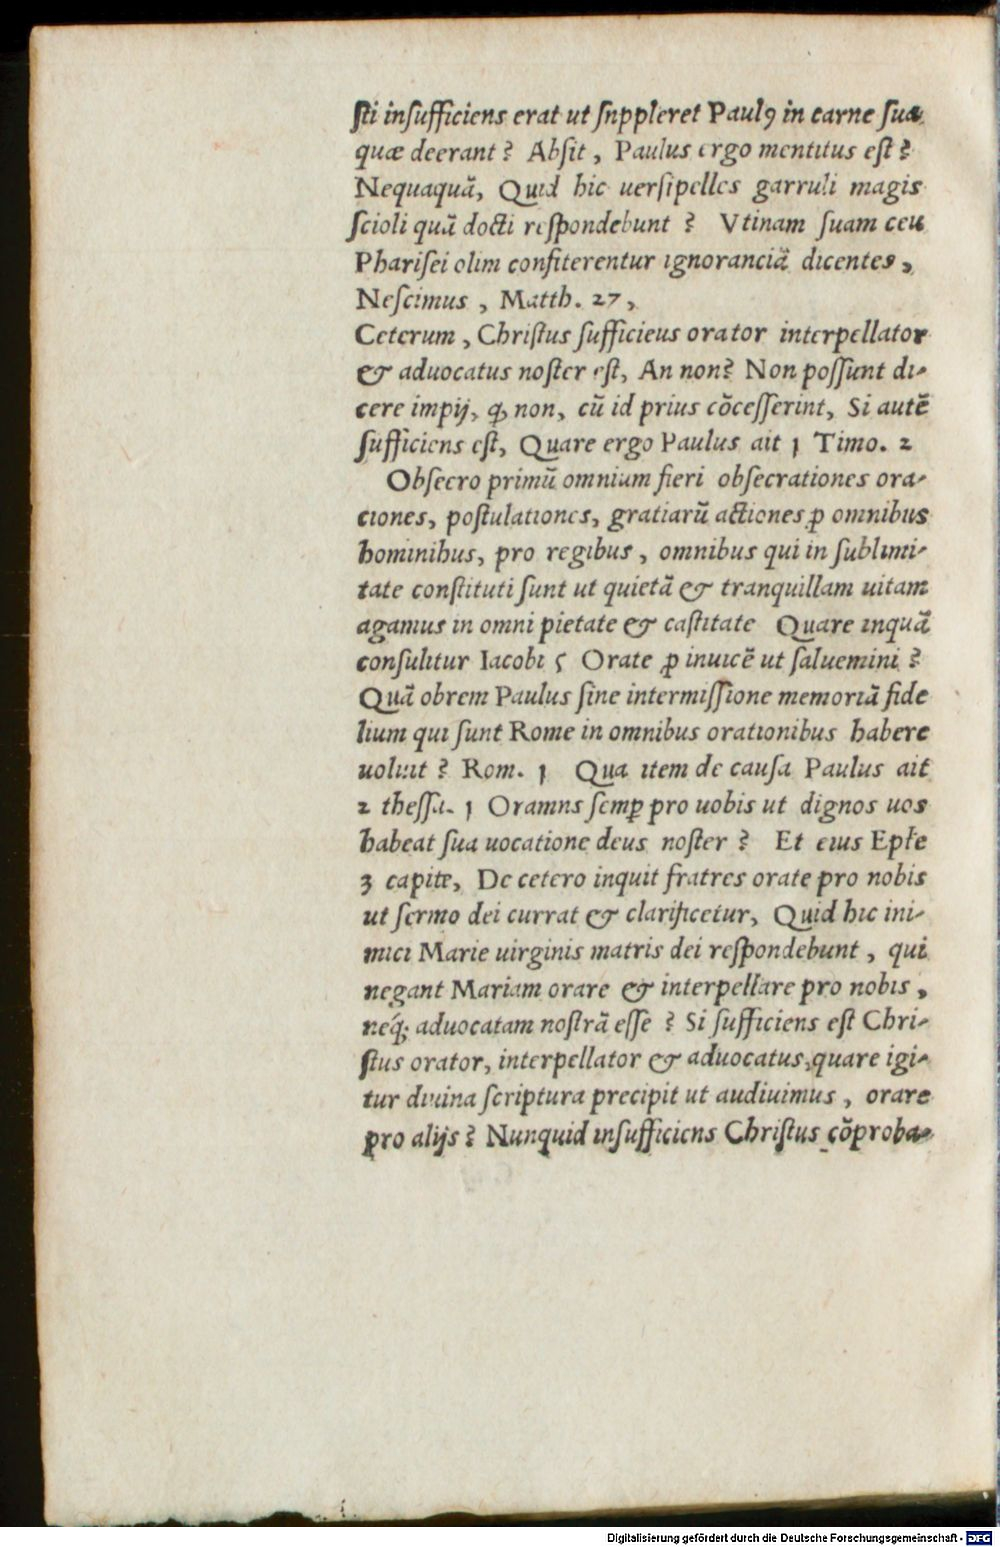 ſti inſufficiens erat ut ſnppleret Paulꝯ in carne ſua
quæ deerant? Abſit, Paulus ergo mentitus eſt?
Nequaquã, Quid hic uerſipelles garruli magis
ſcioli quã docti reſpondebunt ? Vtinam ſuam ceu
Phariſei olim confiterentur ignoranciã dicentes,
Neſcimus, Matth. 27,
Ceterum, Chriſtus ſufficieus orator interpellator
& aduocatus noſter eſt, An non? Non poſſunt di-
cere impij, ꝙ non, cũ id prius cõceſſerint, Si autẽ
ſufficiens eſt, Quare ergo Paulus ait 1 Timo. 2
Obſecro primũ omnium fieri obſecrationes ora-
ciones, poſtulationes, gratiarũ actiones ꝓ omnibus
hominibus, pro regibus, omnibus qui in ſublimi-
tate conſtituti ſunt ut quietã & tranquillam uitam
agamus in omni pietate & caſtitate Quare inquã
conſulitur Iacobi 5 Orate ꝓ inuicẽ ut ſaluemini ?
Quã obrem Paulus ſine intermiſſione memoriã fide
lium qui ſunt Rome in omnibus orationibus habere
uoluit ? Rom. 1 Qua item de cauſa Paulus ait
2 theſſa. 1 Oramns ſemꝑ pro uobis ut dignos uos
habeat ſua uocatione deus noſter ? Et eius Epłe
3 capite, De cetero inquit fratres orate pro nobis
ut ſermo dei currat & clarificetur, Quid hic ini-
mici Marie uirginis matris dei reſpondebunt, qui
negant Mariam orare & interpellare pro nobis,
neq́; aduocatam noſtrã eſſe ? Si ſufficiens eſt Chri-
ſtus orator, interpellator & aduocatus, quare igi-
tur diuina ſcriptura precipit ut audiuimus, orare
pro alijs ? Nunquid inſufficiens Chriſtus cõproba-
Digitalisierung gefördert durch die Deutsche Forschungsgemeinschaft - DFG